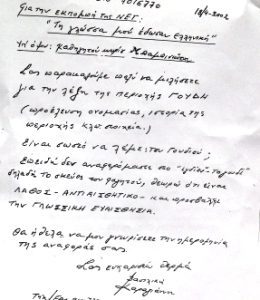 4016770
18/4-2002
Για την εκπομπή της ΝΕΤ:
"Τη γλώσσα μού έδωσαν Ελληνική"
Υπ όψιν: καθηγητού κυρίου
Σας παρακαλούμε πολύ να μιλήσετε
για την λέξη της περιοχής ΓΟΥΔΗ
(προέλευση ονομασίας, ιστορία της
περιοχής κλπ στοιχεία.)
Είναι σωστό να λέμε: του Γουδιού;
Επειδή δεν αναφερόμαστε στο
δηλαδή το σκεύος του φαγητού, θεωρώ ότι είναι
ΛΑΘΟΣ - ΑΝΤΙΑΙΣΘΗΤΙΚΟ - και προσβάλλει
την ΓΛΩΣΣΙΚΗ ΕΥΑΙΣΘΗΣΙΑ.
Θα ήθελα να μου γνωρίσετε την ημερομηνία
της αναφοράς σας.
Σας ευχαριστώ θερμά
Βασιλική